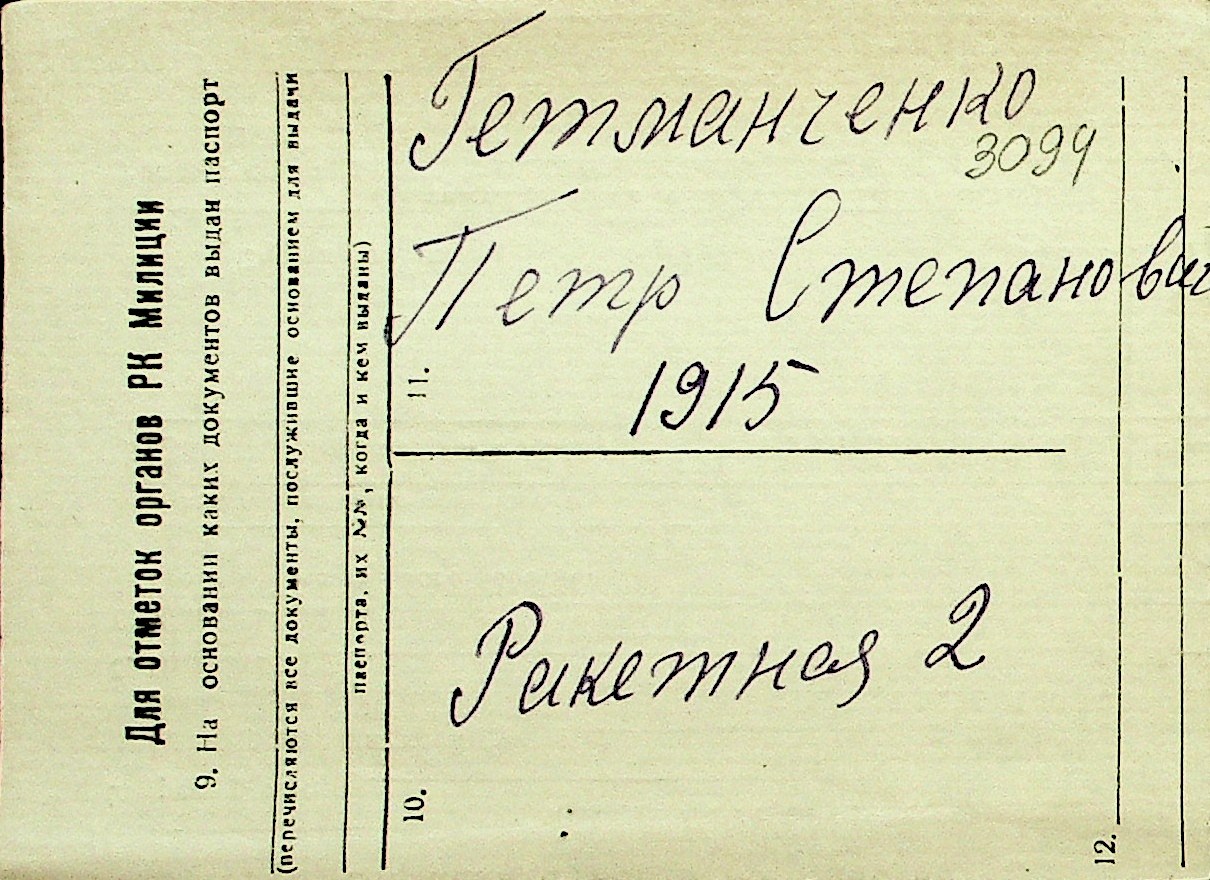 Для отметок органов РК Милиции
9. На основании каких документов выдан паспорт
(перечисляются все документы, послужившие основанием для выдачи
паспорта, их №№, когда и кем выданы)
Гетманченко
3094
Петр Степанович
11.
1915
Ракетная 2
10.
12.